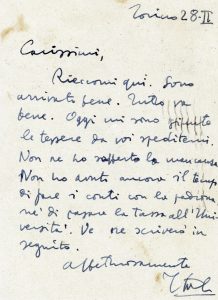 Torino 28-II
Carissimi,
Rieccomi qui. Sono
arrivato bene. Tutto va
bene. Oggi mi sono giunte
le tessere da voi speditemi.
Non ne ho sofferto la mancanza
Non ho avuto ancora il tempo
di fare i conti con la padrona
nè di pagare la tassa all'Uni
versità. Ve ne scriverò in
seguito.
affettuosamente